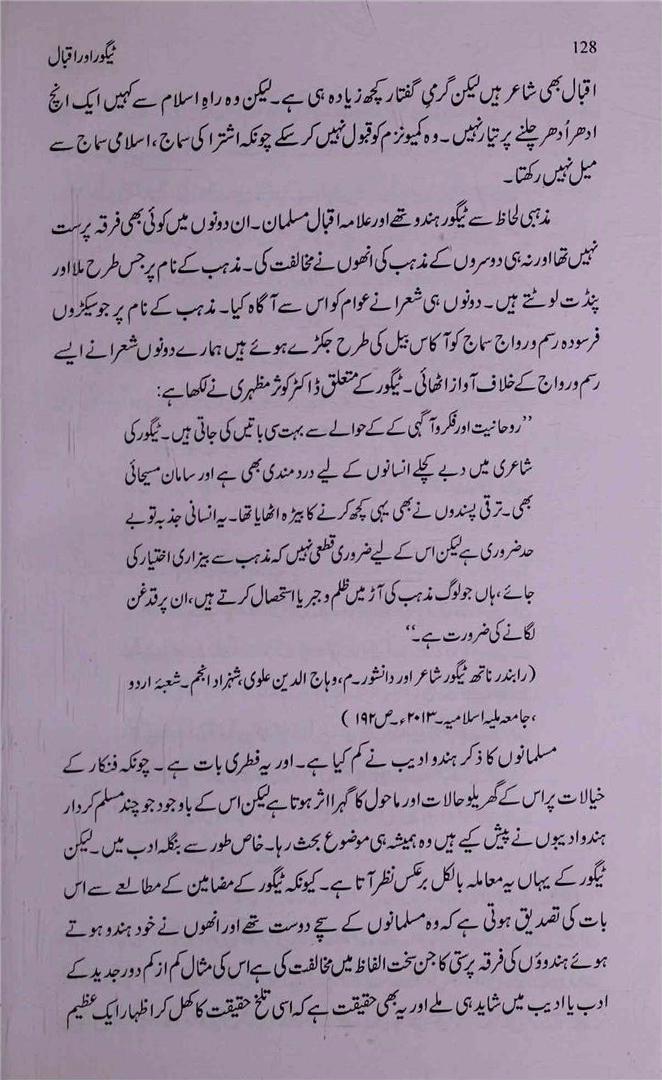 128
ٹیگور اور اقبال
اقبال بھی شاعر ہیں لیکن گرمیِ گفتار کچھ زیادہ ہی ہے۔ لیکن وہ راہِ اسلام سے کہیں ایک انچ
ادھر اُدھر چلنے پر تیار نہیں۔ وہ کمیونزم کو قبول نہیں کر سکے چونکہ اشتراکی سماج، اسلامی سماج سے
میل نہیں رکھتا۔
مذہبی لحاظ سے ٹیگور ہندو تھے اور علامہ اقبال مسلمان۔ ان دونوں میں کوئی بھی فرقہ پرست
نہیں تھا اور نہ ہی دوسروں کے مذہب کی انھوں نے مخالفت کی۔ مذہب کے نام پر جس طرح ملا اور
پنڈت لوٹتے ہیں۔ دونوں ہی شعرا نے عوام کو اس سے آگاہ کیا۔ مذہب کے نام پر جو سیکڑوں
فرسودہ رسم و رواج سماج کو آکاس بیل کی طرح جکڑے ہوئے ہیں ہمارے دونوں شعرا نے ایسے
رسم و رواج کے خلاف آواز اٹھائی۔ ٹیگور کے متعلق ڈاکٹر کوثر مظہری نے لکھا ہے:
”روحانیت اور فکر و آگہی کے کے حوالے سے بہت سی باتیں کی جاتی ہیں۔ ٹیگور کی
شاعری میں دبے کچلے انسانوں کے لیے دردمندی بھی ہے اور سامان مسیحائی
بھی۔ ترقی پسندوں نے بھی یہی کچھ کرنے کا بیڑہ اٹھایا تھا۔ یہ انسانی جذبہ تو بے
حد ضروری ہے لیکن اس کے لیے ضروری قطعی نہیں کہ مذہب سے بیزاری اختیار کی
جائے، ہاں جو لوگ مذہب کی آڑ میں ظلم و جبر یا استحصال کرتے ہیں، ان پر قدغن
لگانے کی ضرورت ہے۔“
(رابندر ناتھ ٹیگور شاعر اور دانشور۔م، وہاج الدین علوی، شہزاد انجم۔ شعبۂ اردو
، جامعہ ملیہ اسلامیہ۔ ۲۰۱۳ء۔ ص ۱۹۲)
مسلمانوں کا ذکر ہندو ادیب نے کم کیا ہے۔ اور یہ فطری بات ہے۔ چونکہ فنکار کے
خیالات پر اس کے گھریلو حالات اور ماحول کا گہرا اثر ہوتا ہے لیکن اس کے باوجود جو چند مسلم کردار
ہندو ادیبوں نے پیش کیے ہیں وہ ہمیشہ ہی موضوع بحث رہا۔ خاص طور سے بنگلہ ادب میں۔ لیکن
ٹیگور کے یہاں یہ معاملہ بالکل برعکس نظر آتا ہے۔ کیونکہ ٹیگور کے مضامین کے مطالعے سے اس
بات کی تصدیق ہوتی ہے کہ وہ مسلمانوں کے سچے دوست تھے اور انھوں نے خود ہندو ہوتے
ہوئے ہندوؤں کی فرقہ پرستی کا جن سخت الفاظ میں مخالفت کی ہے اس کی مثال کم از کم دور جدید کے
ادب یا ادیب میں شاید ہی ملے اور یہ بھی حقیقت ہے کہ اسی تلخ حقیقت کا کھل کر اظہار ایک عظیم